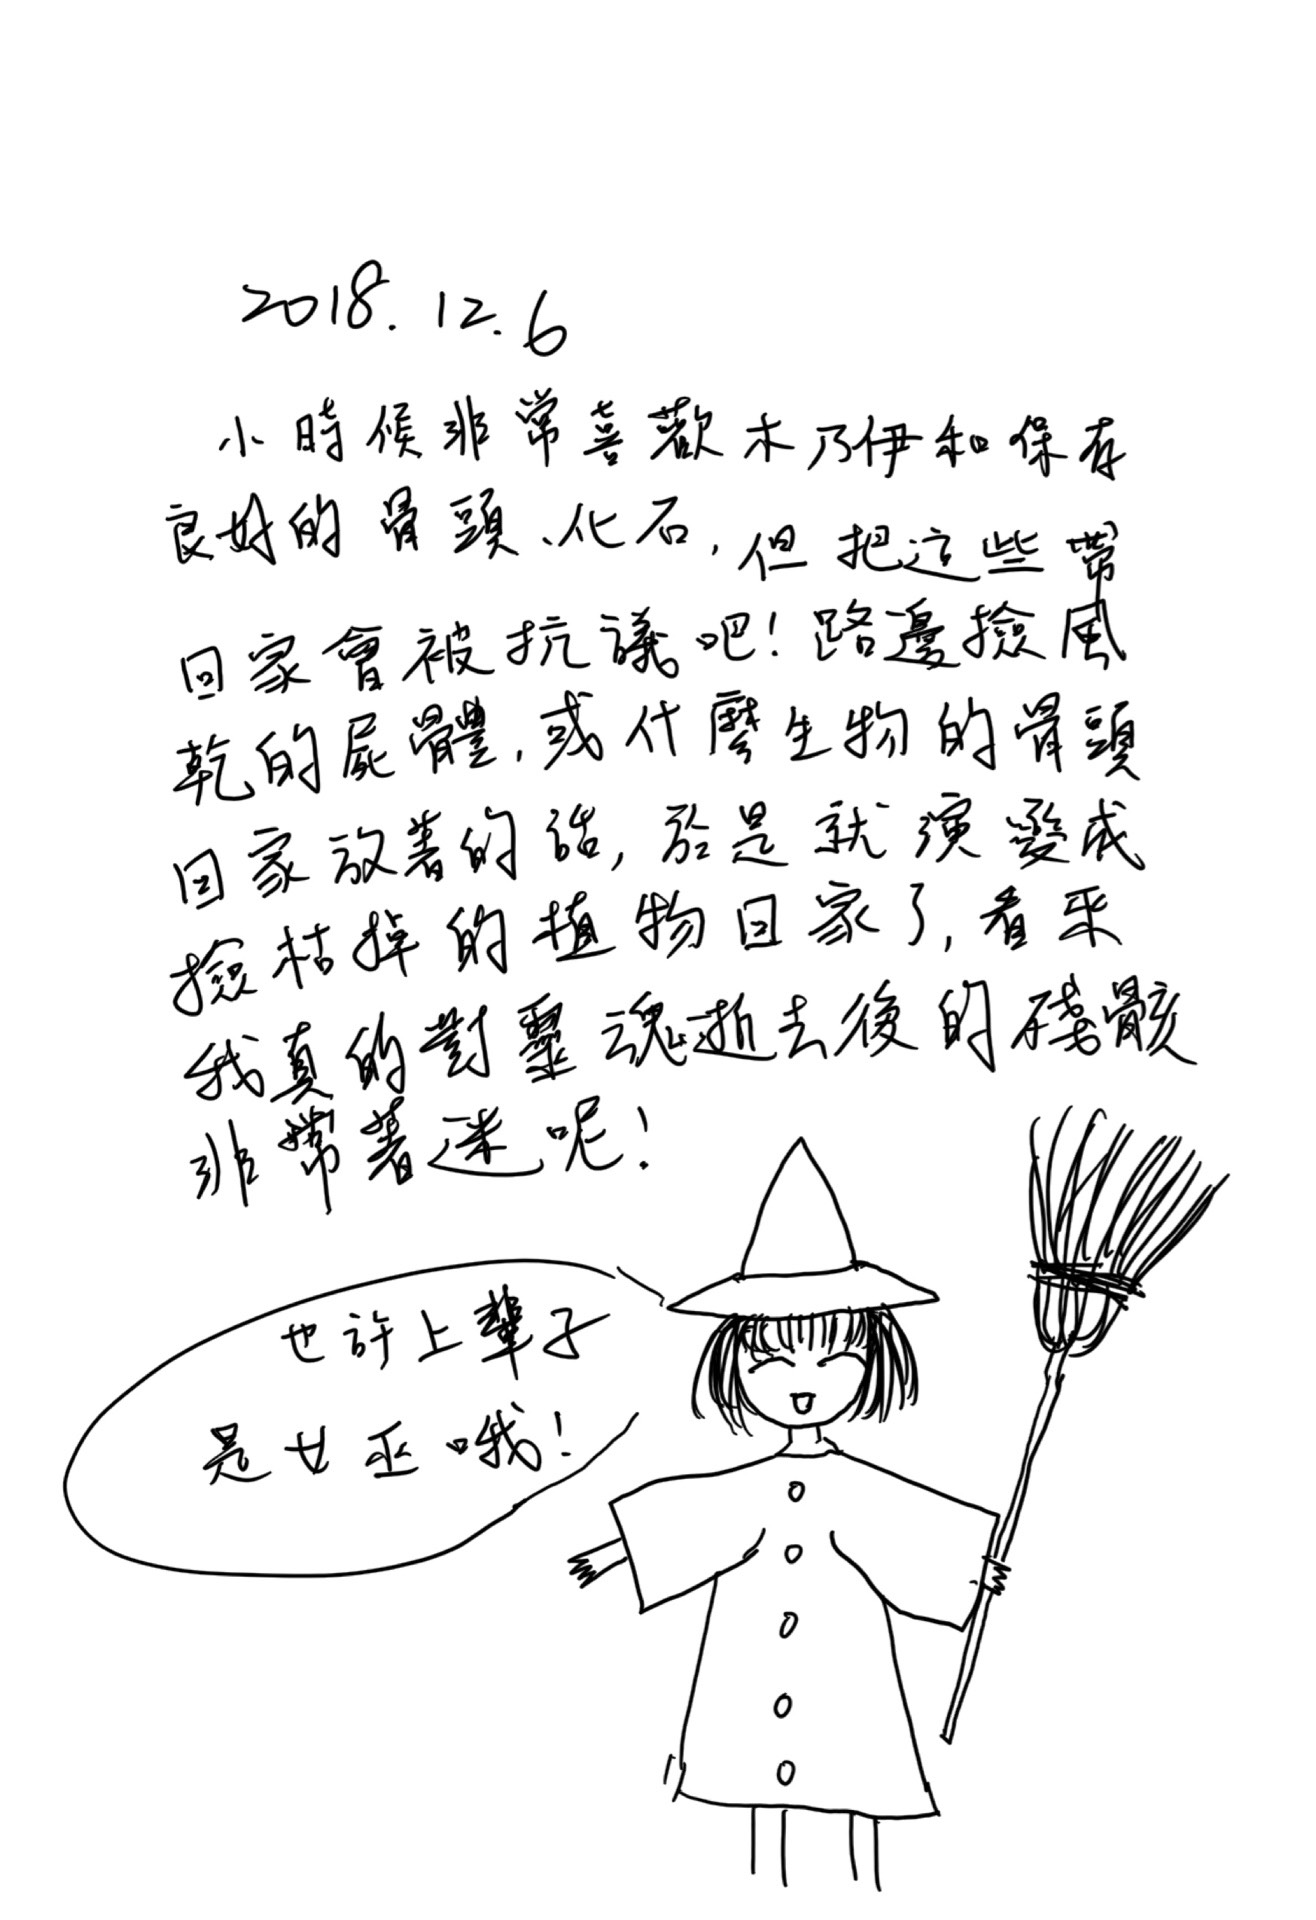 2018.12.6
小時候非常喜歡木乃伊和保存
良好的骨頭、化石,但把這些帶
回家會被抗議吧!路邊撿風
乾的屍體,或什麼生物的骨頭
回家放著的話,於是就演變成
撿枯掉的植物回家了,看來
我真的對靈魂逝去後的殘骸
非常著迷呢!
也許上輩子
是女巫哦!